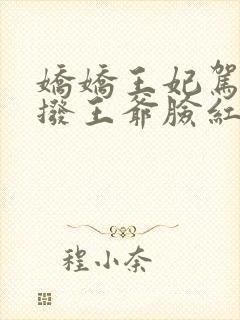 嬌嬌王妃駕
撥王爺臉紅
程小奈